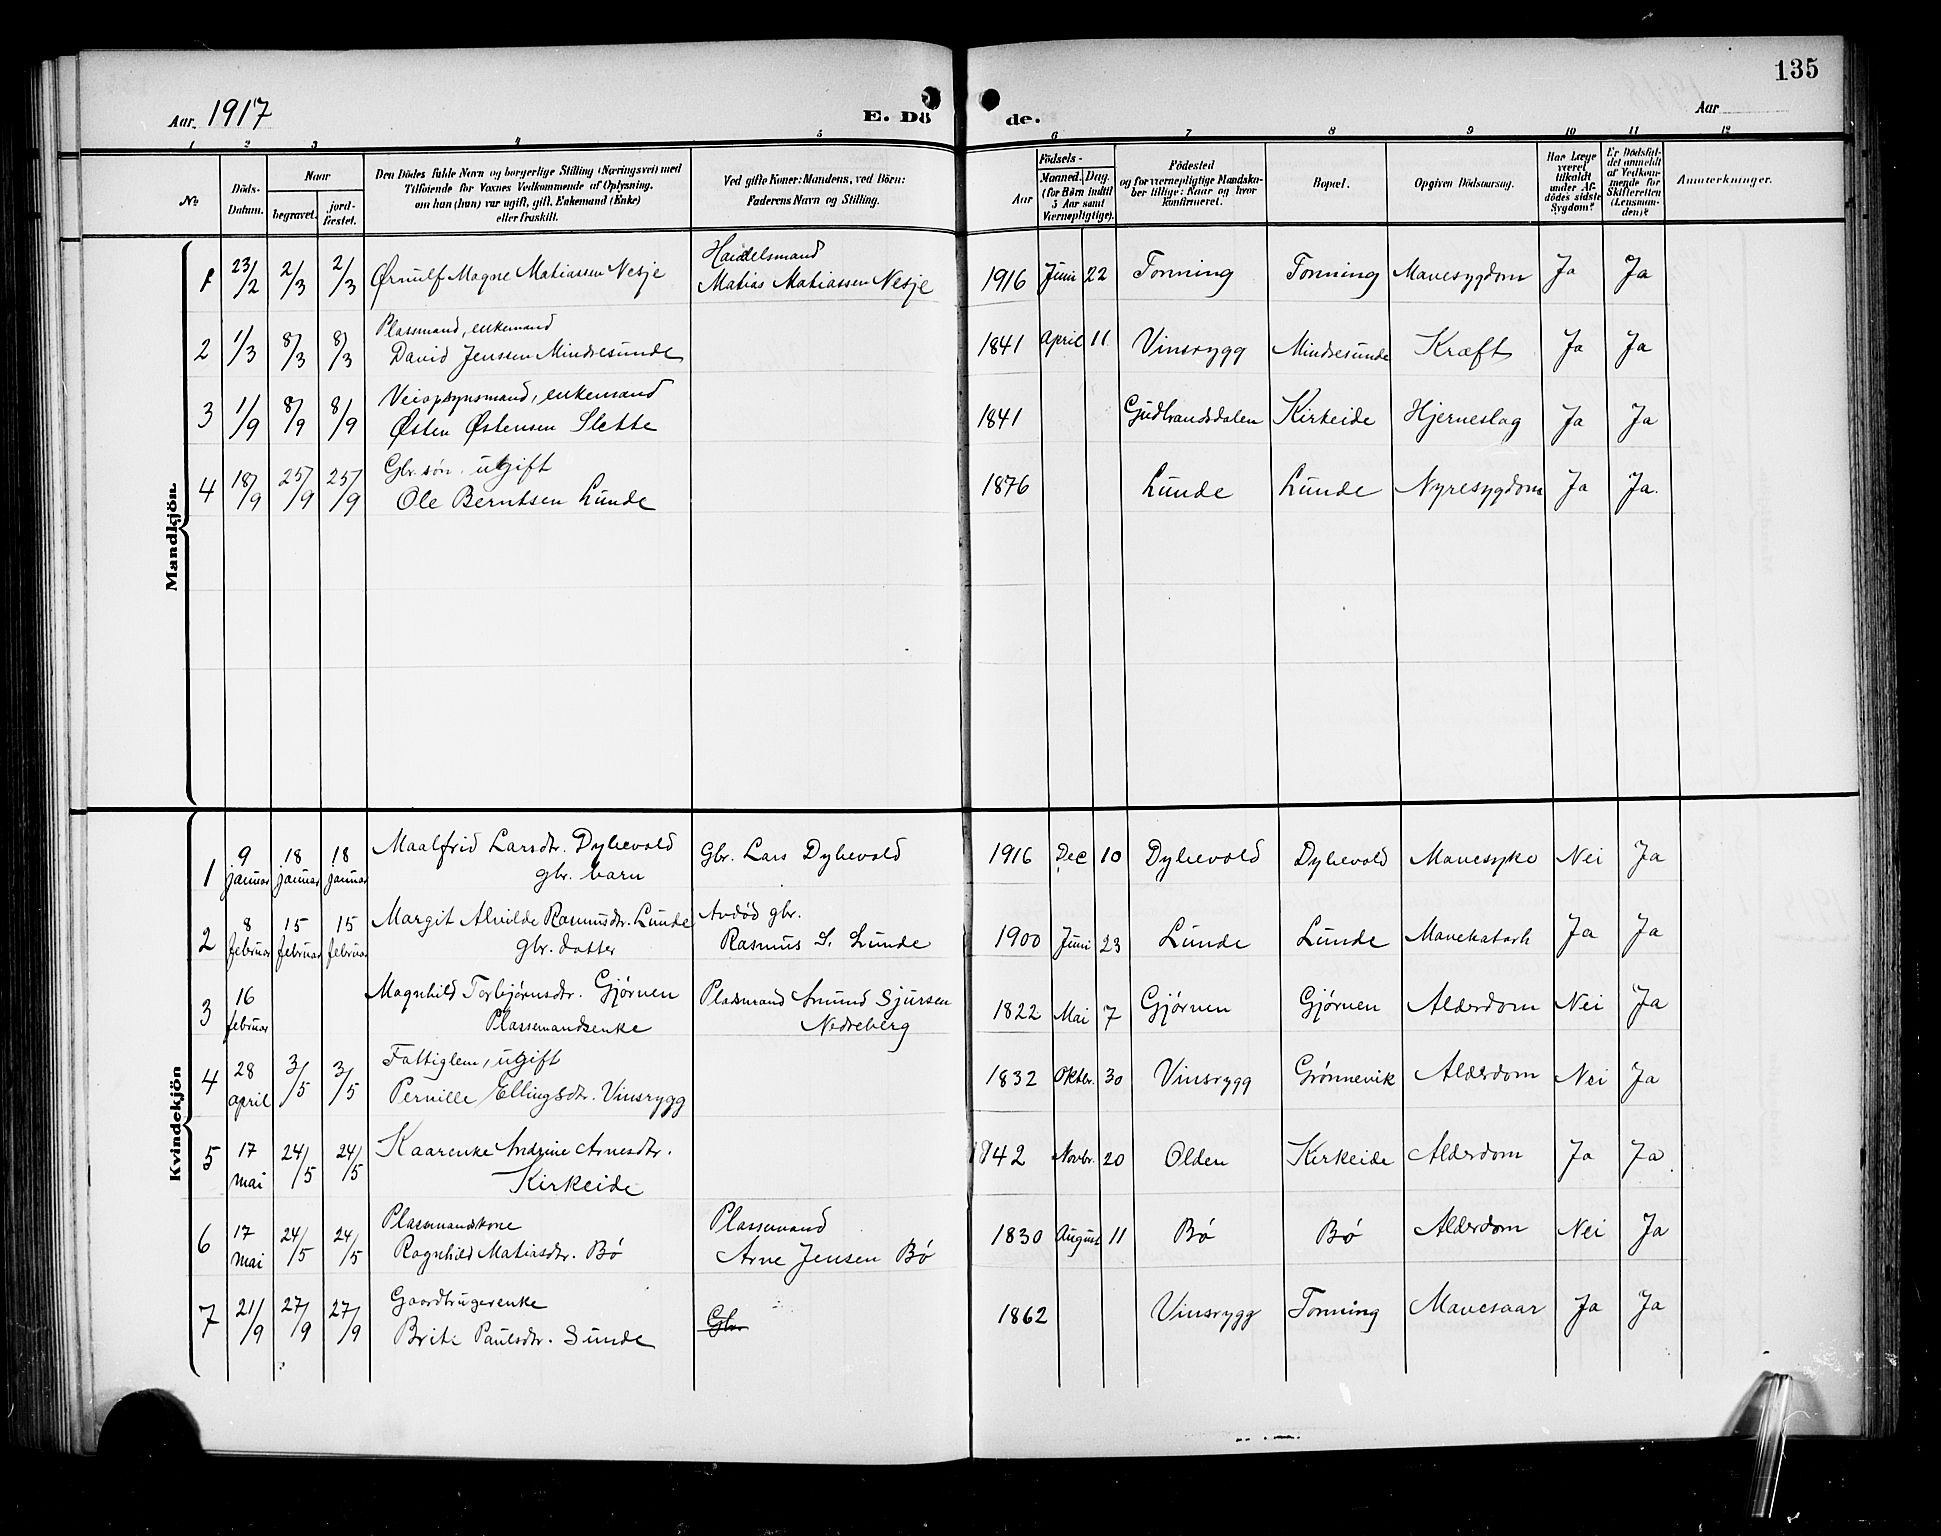 135
Aar. 1917
E. Dö
de.
Aar
1 2 3 4 5 6 7 8 9 10 11 12
No
Döds-Datum.
Naar
begravet.
jord-fæstet.
Den Dödes fulde Navn og borgerlige Stilling (Næringsvei) med
Tilföiende for Voxnes Vedkommende af Oplysning,
om han (hun) var ugift, gift, Enkemand (Enke)
eller fraskilt.
Ved gifte Koner: Mandens, ved Börn:
Faderens Navn og Stilling.
Födsels-
Aar
Maaned. Dag.
(for Börn indtil
5 Aar samt
Værnepligtige).
Födested
og for værnepligtige Mandska-
ber tillige: Naar og hvor
konfirmeret.
Bopæl.
Opgiven Dödsaarsag.
Har Læge
været
tilkaldt
under Af-
dödes sidste
Sygdom?
Er Dödsfal-
det anmeldt
af Vedkom-
mende for
Skifteretten
(Lensman-
den)?
Anmærkninger.
Mandkjön.
1 23/2 2/3 2/3 Ørnulf Magne Matiassen Nesje Handelsmand Matias Matiassen Nesje 1916 Juni 22 Tonning Tonning Mavesygdom Ja Ja
2 1/3 8/3 8/3 Plassmand, enkemand David Jenssen Mindresunde 1841 April 11. Vinsrygg Mindresunde Kræft Ja Ja
3 1/9 8/9 8/9 Veiopsynsmand, enkemand Østen Østensen Slette 1841 Gudbrandsdalen Kirkeide Hjerneslag Ja Ja
4 18/9 25/9 25/9 Gbr. søn, ugift Ole Berntsen Lunde 1876 Lunde Lunde Nyresygdom Ja Ja.
Kvindekjön
1 9 januar 18 januar 18 januar Maalfrid Larsdtr. Dybevold gbr. barn Gbr. Lars Dybevold 1916 Dec 10 Dybevold Dybevold Mavesyke Nei Ja
2 8 februar 15 februar 15 februar Margit Alvilde Rasmusdtr. Lunde gbr. datter Avdød gbr. Rasmus S. Lunde 1900 Juni 23 Lunde Lunde Mavekatarh Ja Ja
3 16 februar Magnhild Torbjørnsdtr. Gjørven Plassemandsenke Pladsmand Amund Sjursen Nedreberg 1822 Mai 7 Gjørven Gjørven Alderdom Nei Ja
4 28 april 3/5 3/5 Fattiglem, ugift Pernille Ellingsdtr. Vinsrygg 1832 Oktbr. 30 Vinsrygg Grønnevik Alderdom Nei Ja
5 17 mai 24/5 24/5 Kaarenke Andrine Arnesdtr. Kirkeide 1842 Novbr. 20 Olden Kirkeide Alderdom Ja Ja
6 17 mai 24/5 24/5 Plassmandskone Ragnhild Matiasdtr. Bø Plassmand Arne Jensen Bø 1830 August 11 Bø Bø Alderdom Nei Ja
7 21/9 27/9 27/9 Gaardbrugerenke Brite Paulsdtr. Sunde Gbr 1862 Vinsrygg Tonning Mavesaar Ja Ja